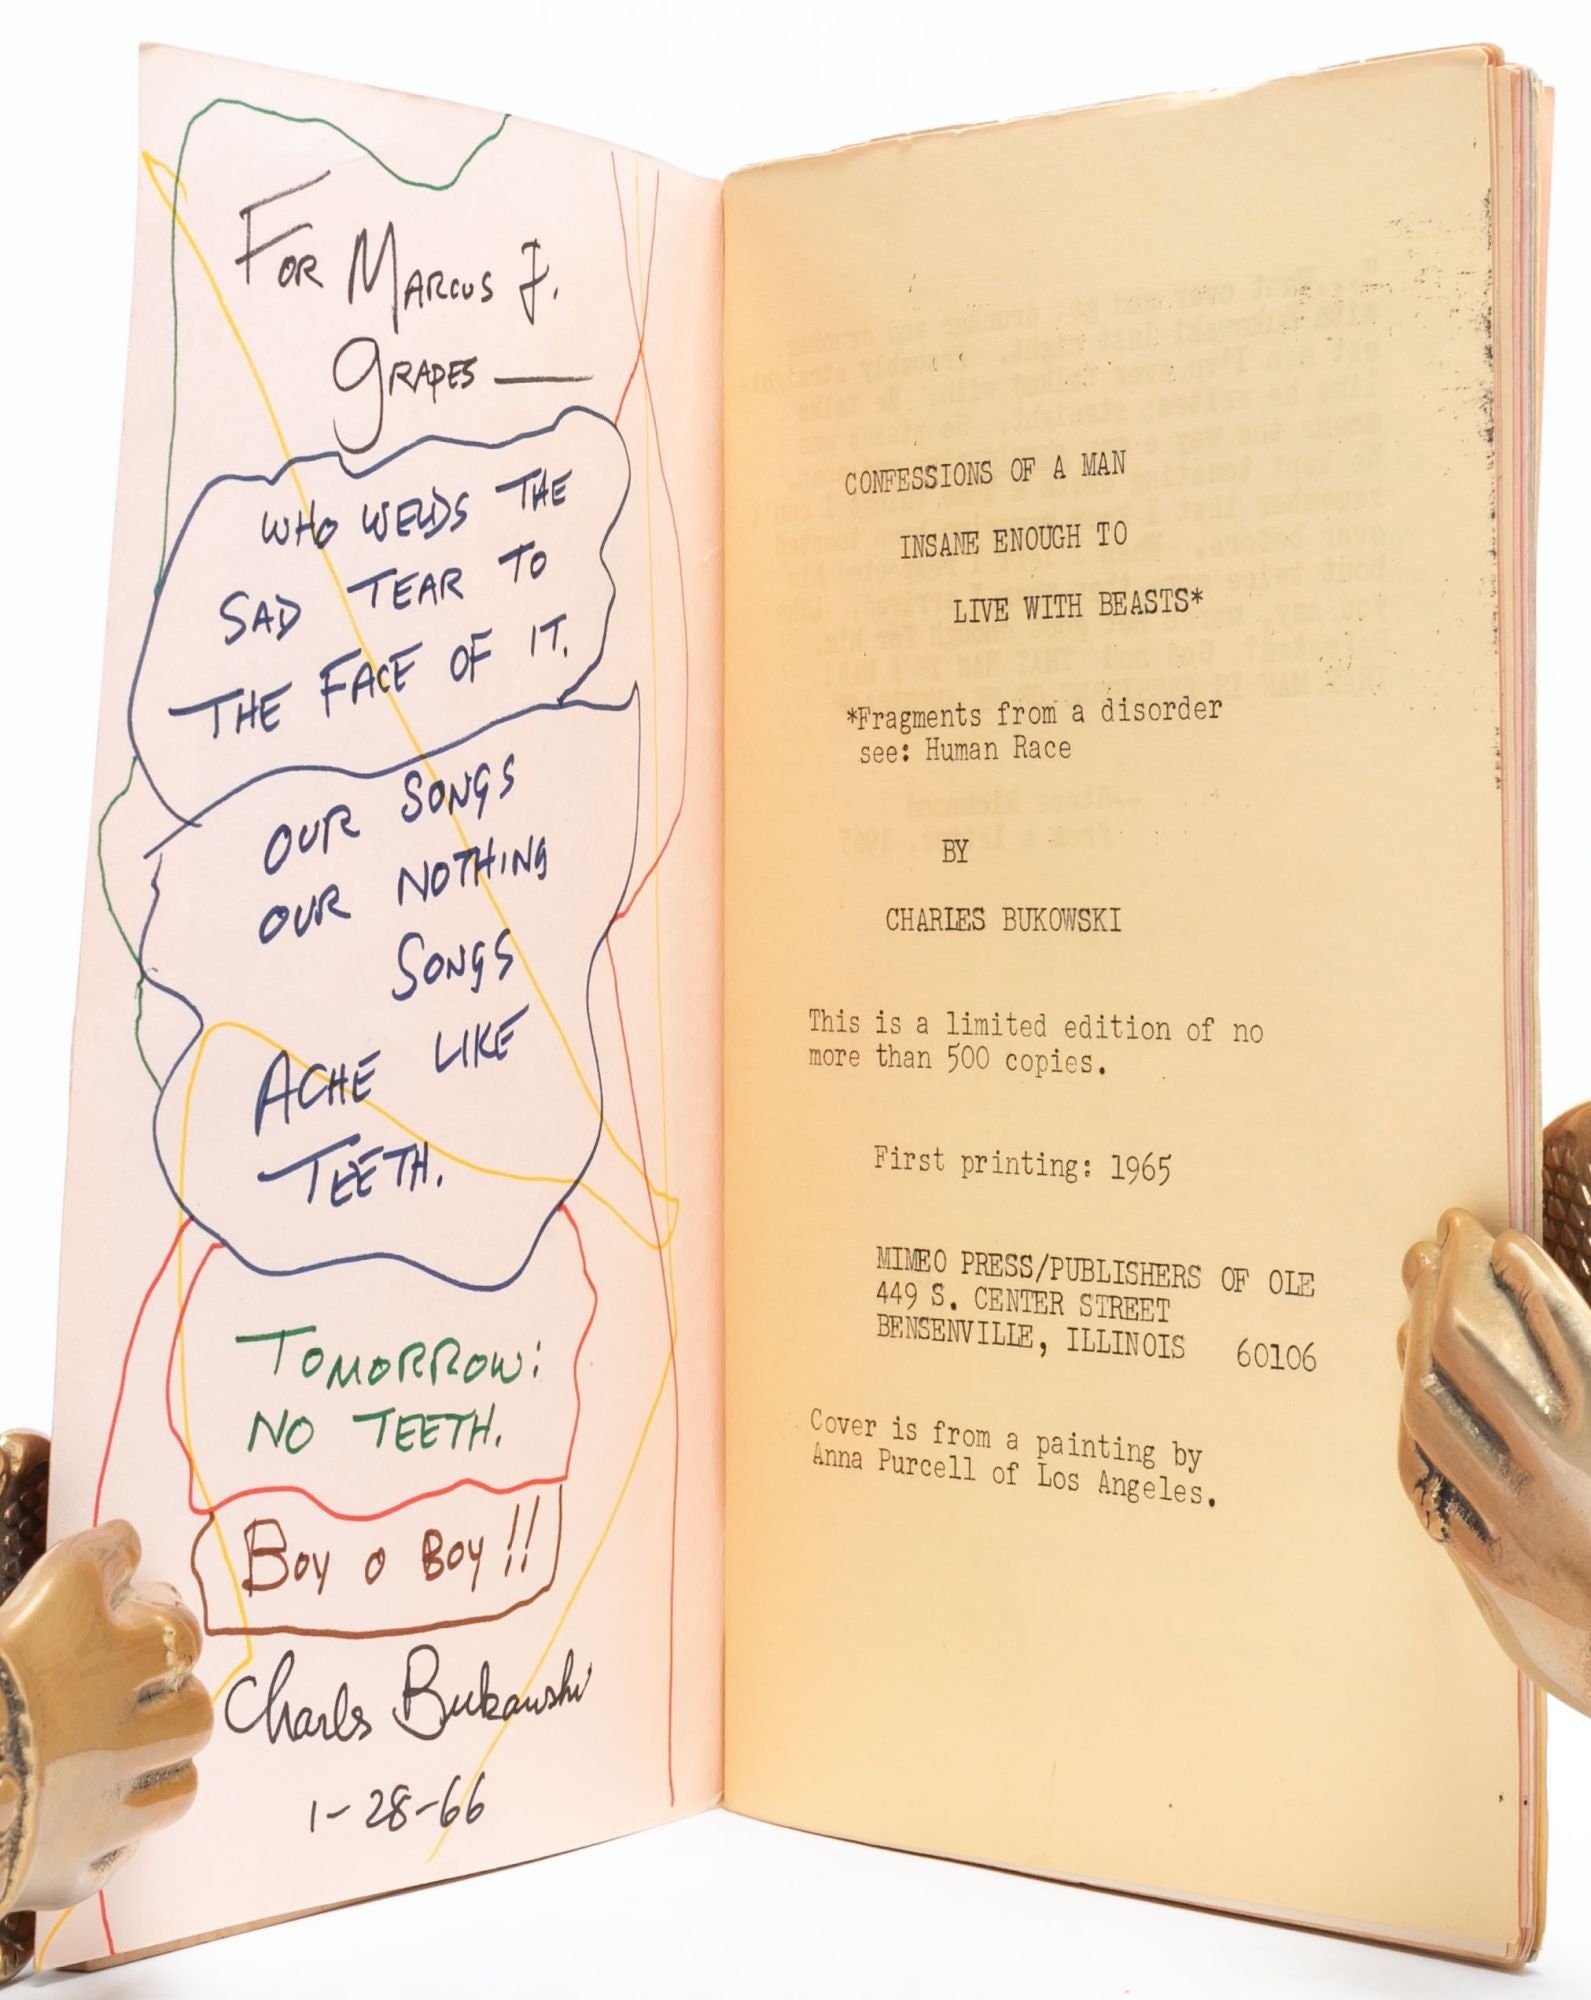 FOR MARCUS J.
GRAPES —
WHO WELDS THE
SAD TEAR TO
THE FACE OF IT.
OUR SONGS
OUR NOTHING
SONGS
ACHE LIKE
TEETH.
TOMORROW:
NO TEETH.
BOY O BOY!!
Charles Bukowski
1-28-66
CONFESSIONS OF A MAN
INSANE ENOUGH TO
LIVE WITH BEASTS*
*Fragments from a disorder
see: Human Race
BY
CHARLES BUKOWSKI
This is a limited edition of no
more than 500 copies.
First printing: 1965
MIMEO PRESS/PUBLISHERS OF OLE
449 S. CENTER STREET
BENSENVILLE, ILLINOIS 60106
Cover is from a painting by
Anna Purcell of Los Angeles.